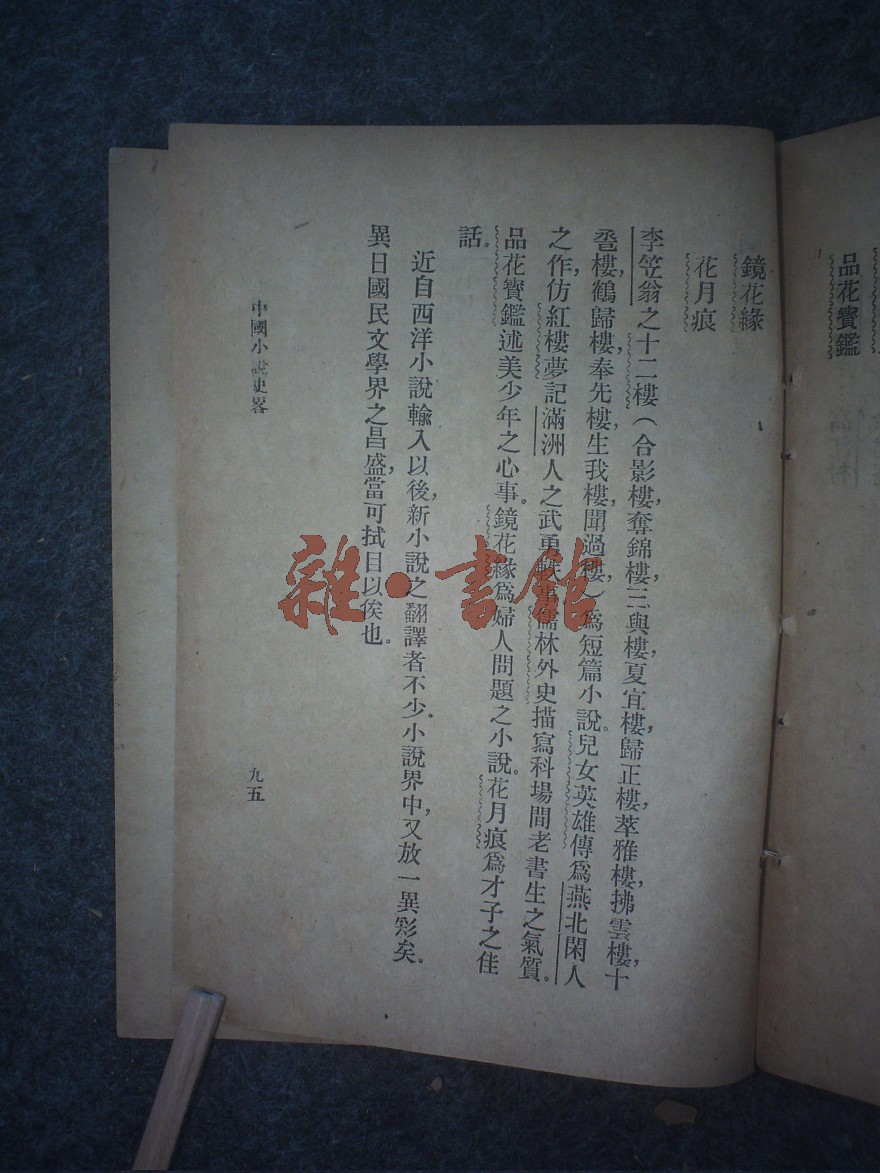 品花寶鑑
鏡花緣
花月痕
李笠翁之十二樓（合影樓，奪錦樓，三與樓，夏宜樓，歸正樓，萃雅樓，拂雲樓，十
巹樓，鶴歸樓，奉先樓，生我樓，聞過樓，）爲短篇小說。兒女英雄傳爲燕北閑人
之作，仿紅樓夢，記滿洲人之武勇軼事。儒林外史描寫科場間老書生之氣質。
品花寶鑑述美少年之心事。鏡花緣爲婦人問題之小說。花月痕爲才子之佳
話。
近自西洋小說輸入以後，新小說之翻譯者不少。小說界中，又放一異彩矣。
異日國民文學界之昌盛，當可拭目以俟也。
中國小說史畧
九五
雜·書館